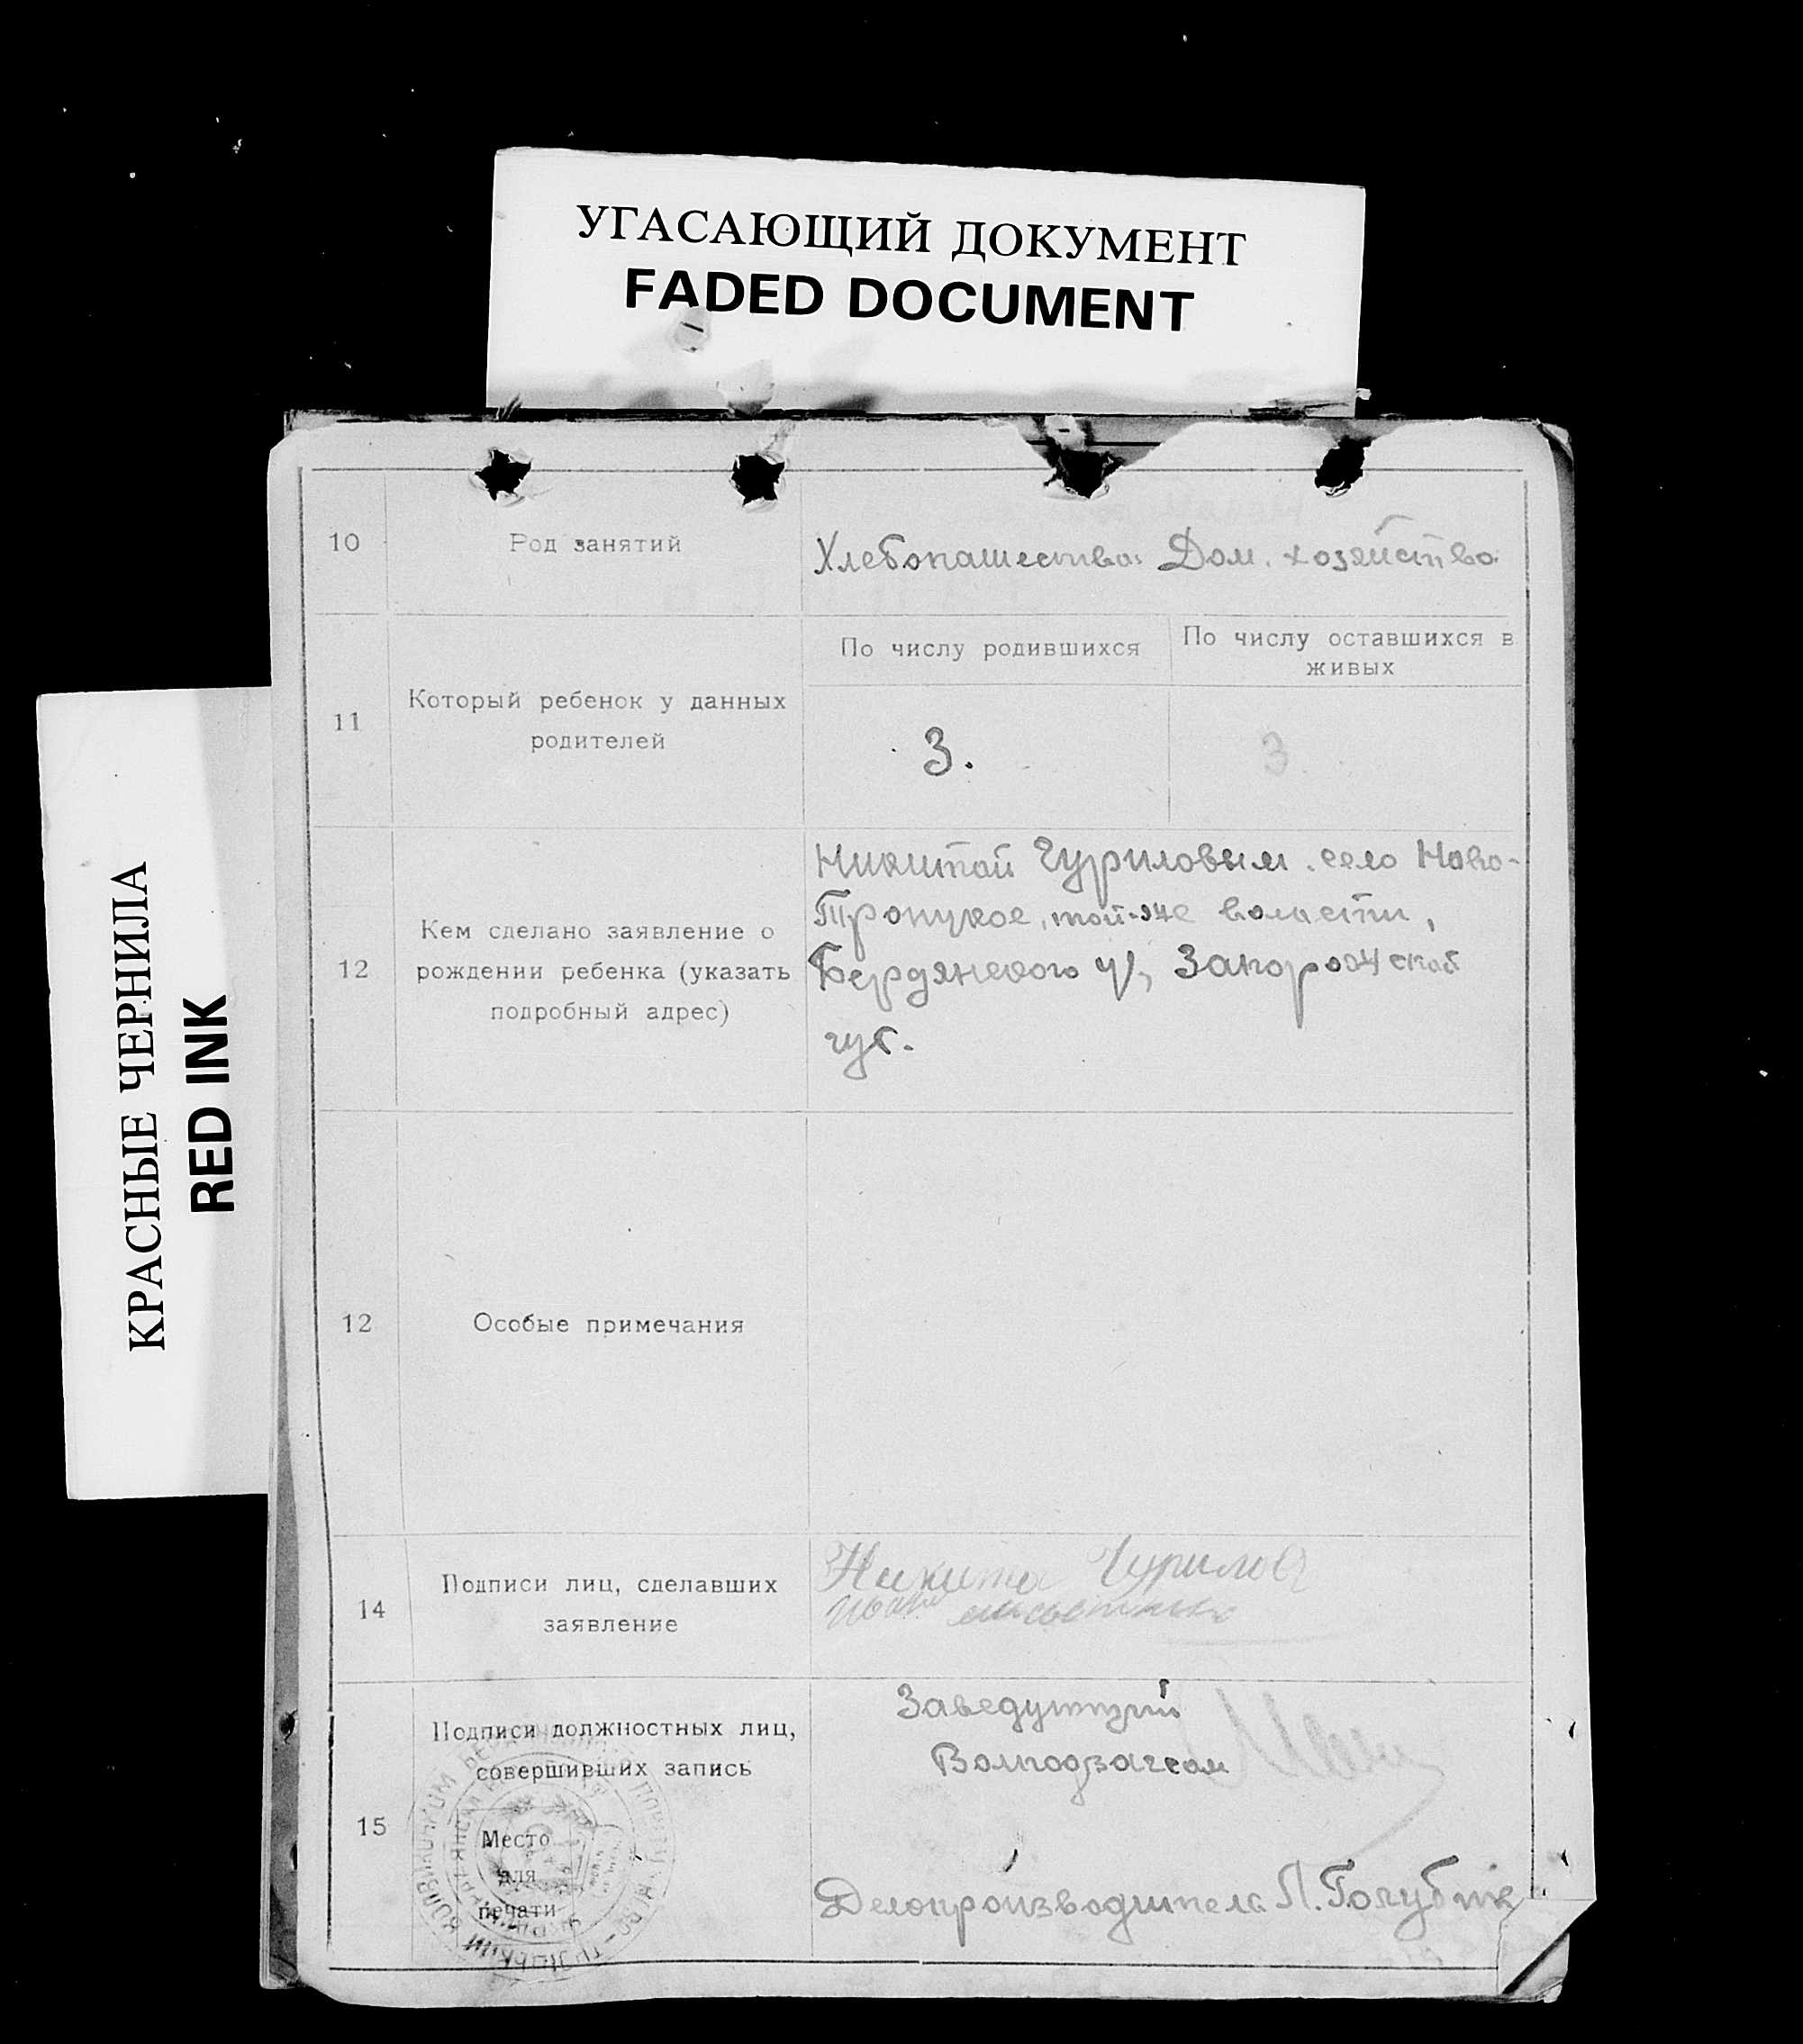 УГАСАЮЩИЙ ДОКУМЕНТ
FADED DOCUMENT
КРАСНЫЕ ЧЕРНИЛА
RED INK
10 Род занятий Хлебопашество Дом. хозяйство
По числу родившихся По числу оставшихся в
живых
11 Который ребенок у данных
родителей
3. 3.
Никитой Чуриловым село Ново-
Троицкое, той-же волости,
12 Кем сделано заявление о
рождении ребенка (указать
подробный адрес)
Бердянского у, Запорожской
губ.
12 Особые примечания
14 Подписи лиц, сделавших
заявление
Никита Чурилов
15 Подписи должностных лиц,
совершивших запись
Заведующий
Волподзагсом
Место
для
печати
Делопроизводитель